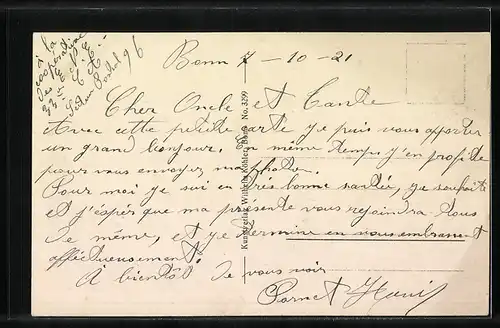 à la
coopérative
des E.P.C.
33e C.A.
Secteur Postal 96
Bonn 7-10-21
Cher Oncle et Tante
Avec cette petite carte je puis vous apporter
un grand bonjour. En même temps j'en profite
pour vous envoyer ma photon.
Pour moi je sui en très bonne santée, je souhaite
et j'éspére que ma présente vous rejoindra tous
de même, et je termine en vous embrassant
affectueusement.
À bientôt de vous voir
Kunstverlag Wilhelm Köhler, Bonn No. 3799